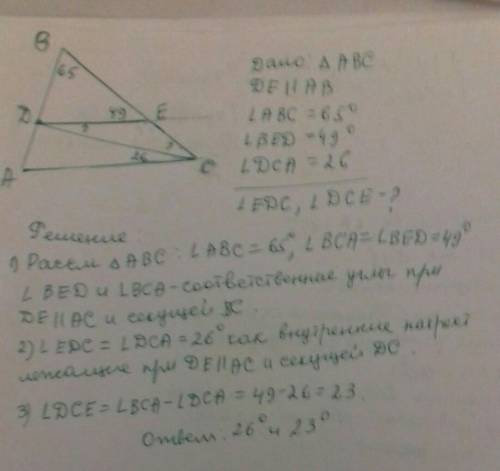 B
65
Дано: △ ABC
DE ∥ AB
D 49 E
∠ABC = 65°
? ?
∠BED = 49°
26
∠DCA = 26
A C
∠EDC, ∠DCE - ?
Решение
1) Рассм △ ABC : ∠ABC = 65°, ∠BCA = ∠BED = 49°
∠ BED и ∠BCA - соответственные углы при
DE ∥ AC и секущей BC.
2) ∠ EDC = ∠DCA = 26° как внутренние накрест
лежащие при DE ∥ AC и секущей DC.
3) ∠DCE = ∠BCA - ∠DCA = 49 - 26 = 23.
Ответ: 26° и 23°